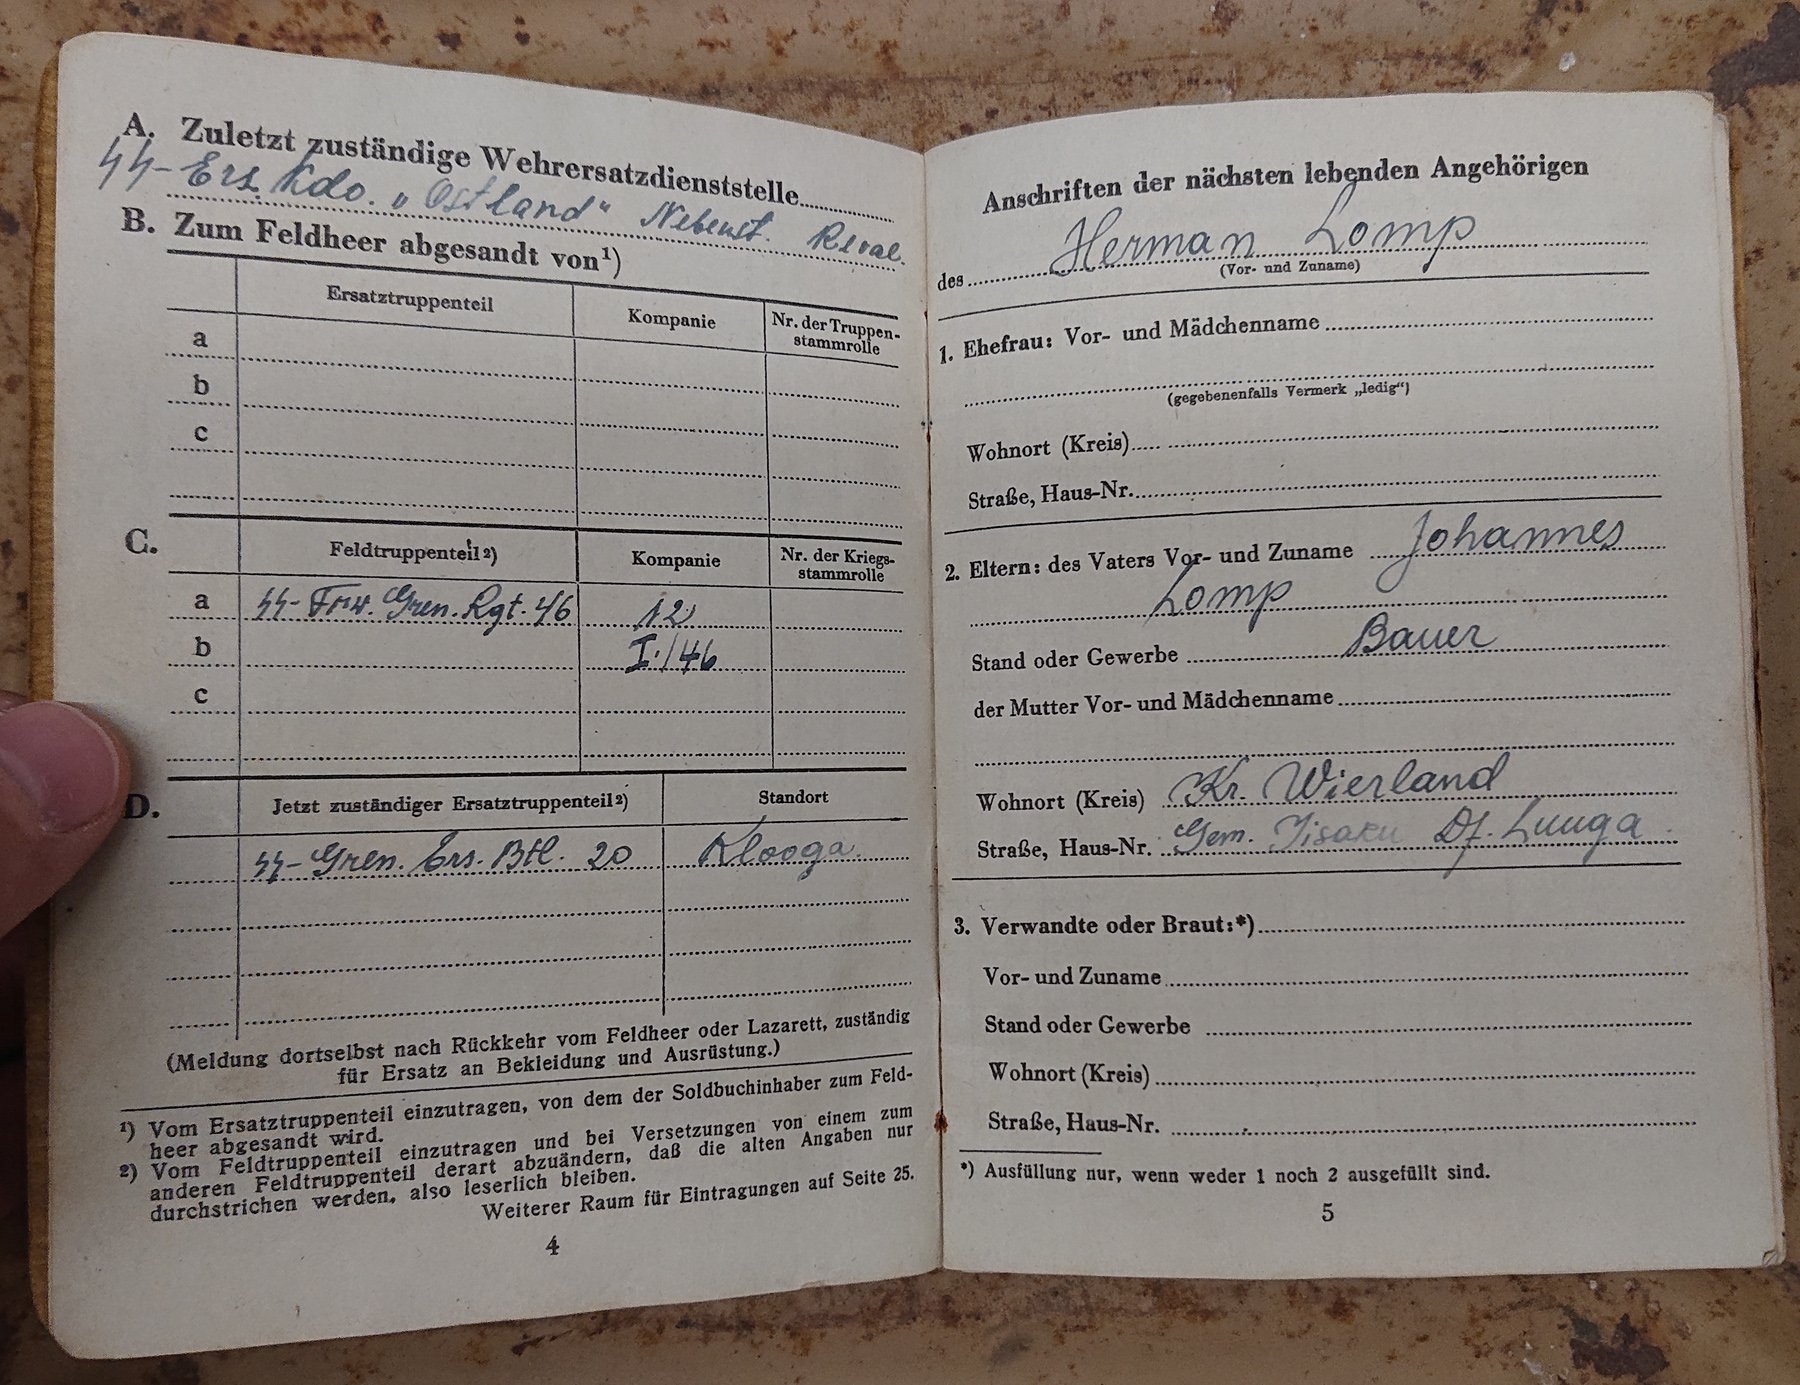 A. Zuletzt zuständige Wehrersatzdienststelle
SS-Ers. Kdo. „Ostland“ Nebenst. Reval.
B. Zum Feldheer abgesandt von¹)
Ersatztruppenteil Kompanie Nr. der Truppen-
stammrolle
a
b
c
C. Feldtruppenteil²) Kompanie Nr. der Kriegs-
stammrolle
a SS-Frw. Gren. Rgt. 46 12
b I./46
c
D. Jetzt zuständiger Ersatztruppenteil²) Standort
SS-Gren. Ers. Btl. 20 Klooga.
(Meldung dortselbst nach Rückkehr vom Feldheer oder Lazarett, zuständig
für Ersatz an Bekleidung und Ausrüstung.)
¹) Vom Ersatztruppenteil einzutragen, von dem der Soldbuchinhaber zum Feld-
heer abgesandt wird.
²) Vom Feldtruppenteil einzutragen und bei Versetzungen von einem zum
anderen Feldtruppenteil derart abzuändern, daß die alten Angaben nur
durchstrichen werden, also leserlich bleiben.
Weiterer Raum für Eintragungen auf Seite 25.
4
Anschriften der nächsten lebenden Angehörigen
des Herman Lomp
(Vor- und Zuname)
1. Ehefrau: Vor- und Mädchenname
(gegebenenfalls Vermerk „ledig“)
Wohnort (Kreis)
Straße, Haus-Nr.
2. Eltern: des Vaters Vor- und Zuname Johannes
Lomp
Stand oder Gewerbe Bauer
der Mutter Vor- und Mädchenname
Wohnort (Kreis) Kr. Wierland
Straße, Haus-Nr. Gem. Iisaku Df. Luuga.
3. Verwandte oder Braut:*)
Vor- und Zuname
Stand oder Gewerbe
Wohnort (Kreis)
Straße, Haus-Nr.
*) Ausfüllung nur, wenn weder 1 noch 2 ausgefüllt sind.
5